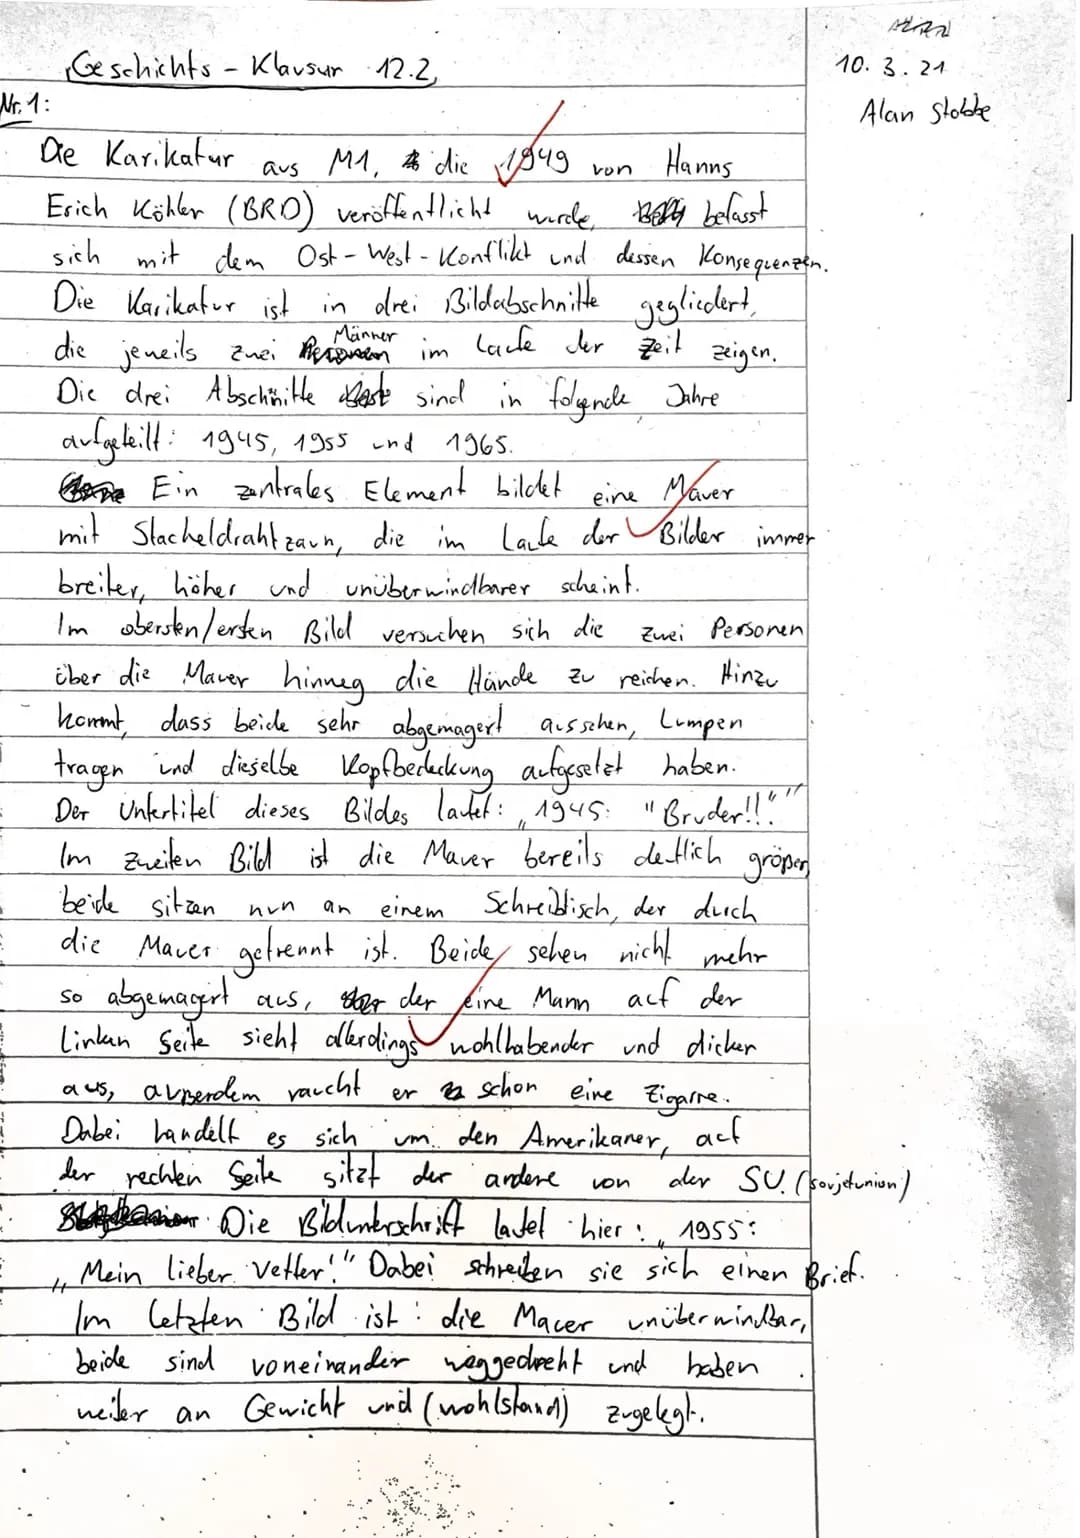 Geschichts - Klausur 12.2
10.3.21
Alan Stobbe
Nr. 1:
Die Karikatur aus M1, die 1949 von Hanns
Erich Köhler (BRD) veröffentlicht wurde, befasst
sich mit dem Ost-West-Konflikt und dessen Konsequenzen.
Die Karikatur ist in drei Bildabschnitte gegliedert,
die jeweils zwei Männer im Laufe der Zeit zeigen.
Die drei Abschnitte sind in folgende Jahre
aufgeteilt: 1945, 1955 und 1965.
Ein zentrales Element bildet eine Mauer
mit Stacheldrahtzaun, die im Laufe der Bilder immer
breiter, höher und unüberwindbarer scheint.
Im obersten/ersten Bild versuchen sich die zwei Personen
über die Mauer hinweg die Hände zu reichen. Hinzu
kommt, dass beide sehr abgemagert aussehen, Lumpen
tragen und dieselbe Kopfbedeckung aufgesetzt haben.
Der Untertitel dieses Bildes lautet: „1945: "Bruder!!“"
Im zweiten Bild ist die Mauer bereits deutlich größer,
beide sitzen nun an einem Schreibtisch, der durch
die Mauer getrennt ist. Beide sehen nicht mehr
so abgemagert aus, der eine Mann auf der
linken Seite sieht allerdings wohlhabender und dicker
aus, außerdem raucht er schon eine Zigarre.
Dabei handelt es sich um den Amerikaner, auf
der rechten Seite sitzt der andere von der SU. (Sovjetunion)
Die Bildunterschrift lautet hier: „1955:
„Mein lieber Vetter!" Dabei schreiben sie sich einen Brief.
Im letzten Bild ist die Mauer unüberwindbar,
beide sind voneinander weggedreht und haben
weiter an Gewicht und (wohlstand) zugelegt.